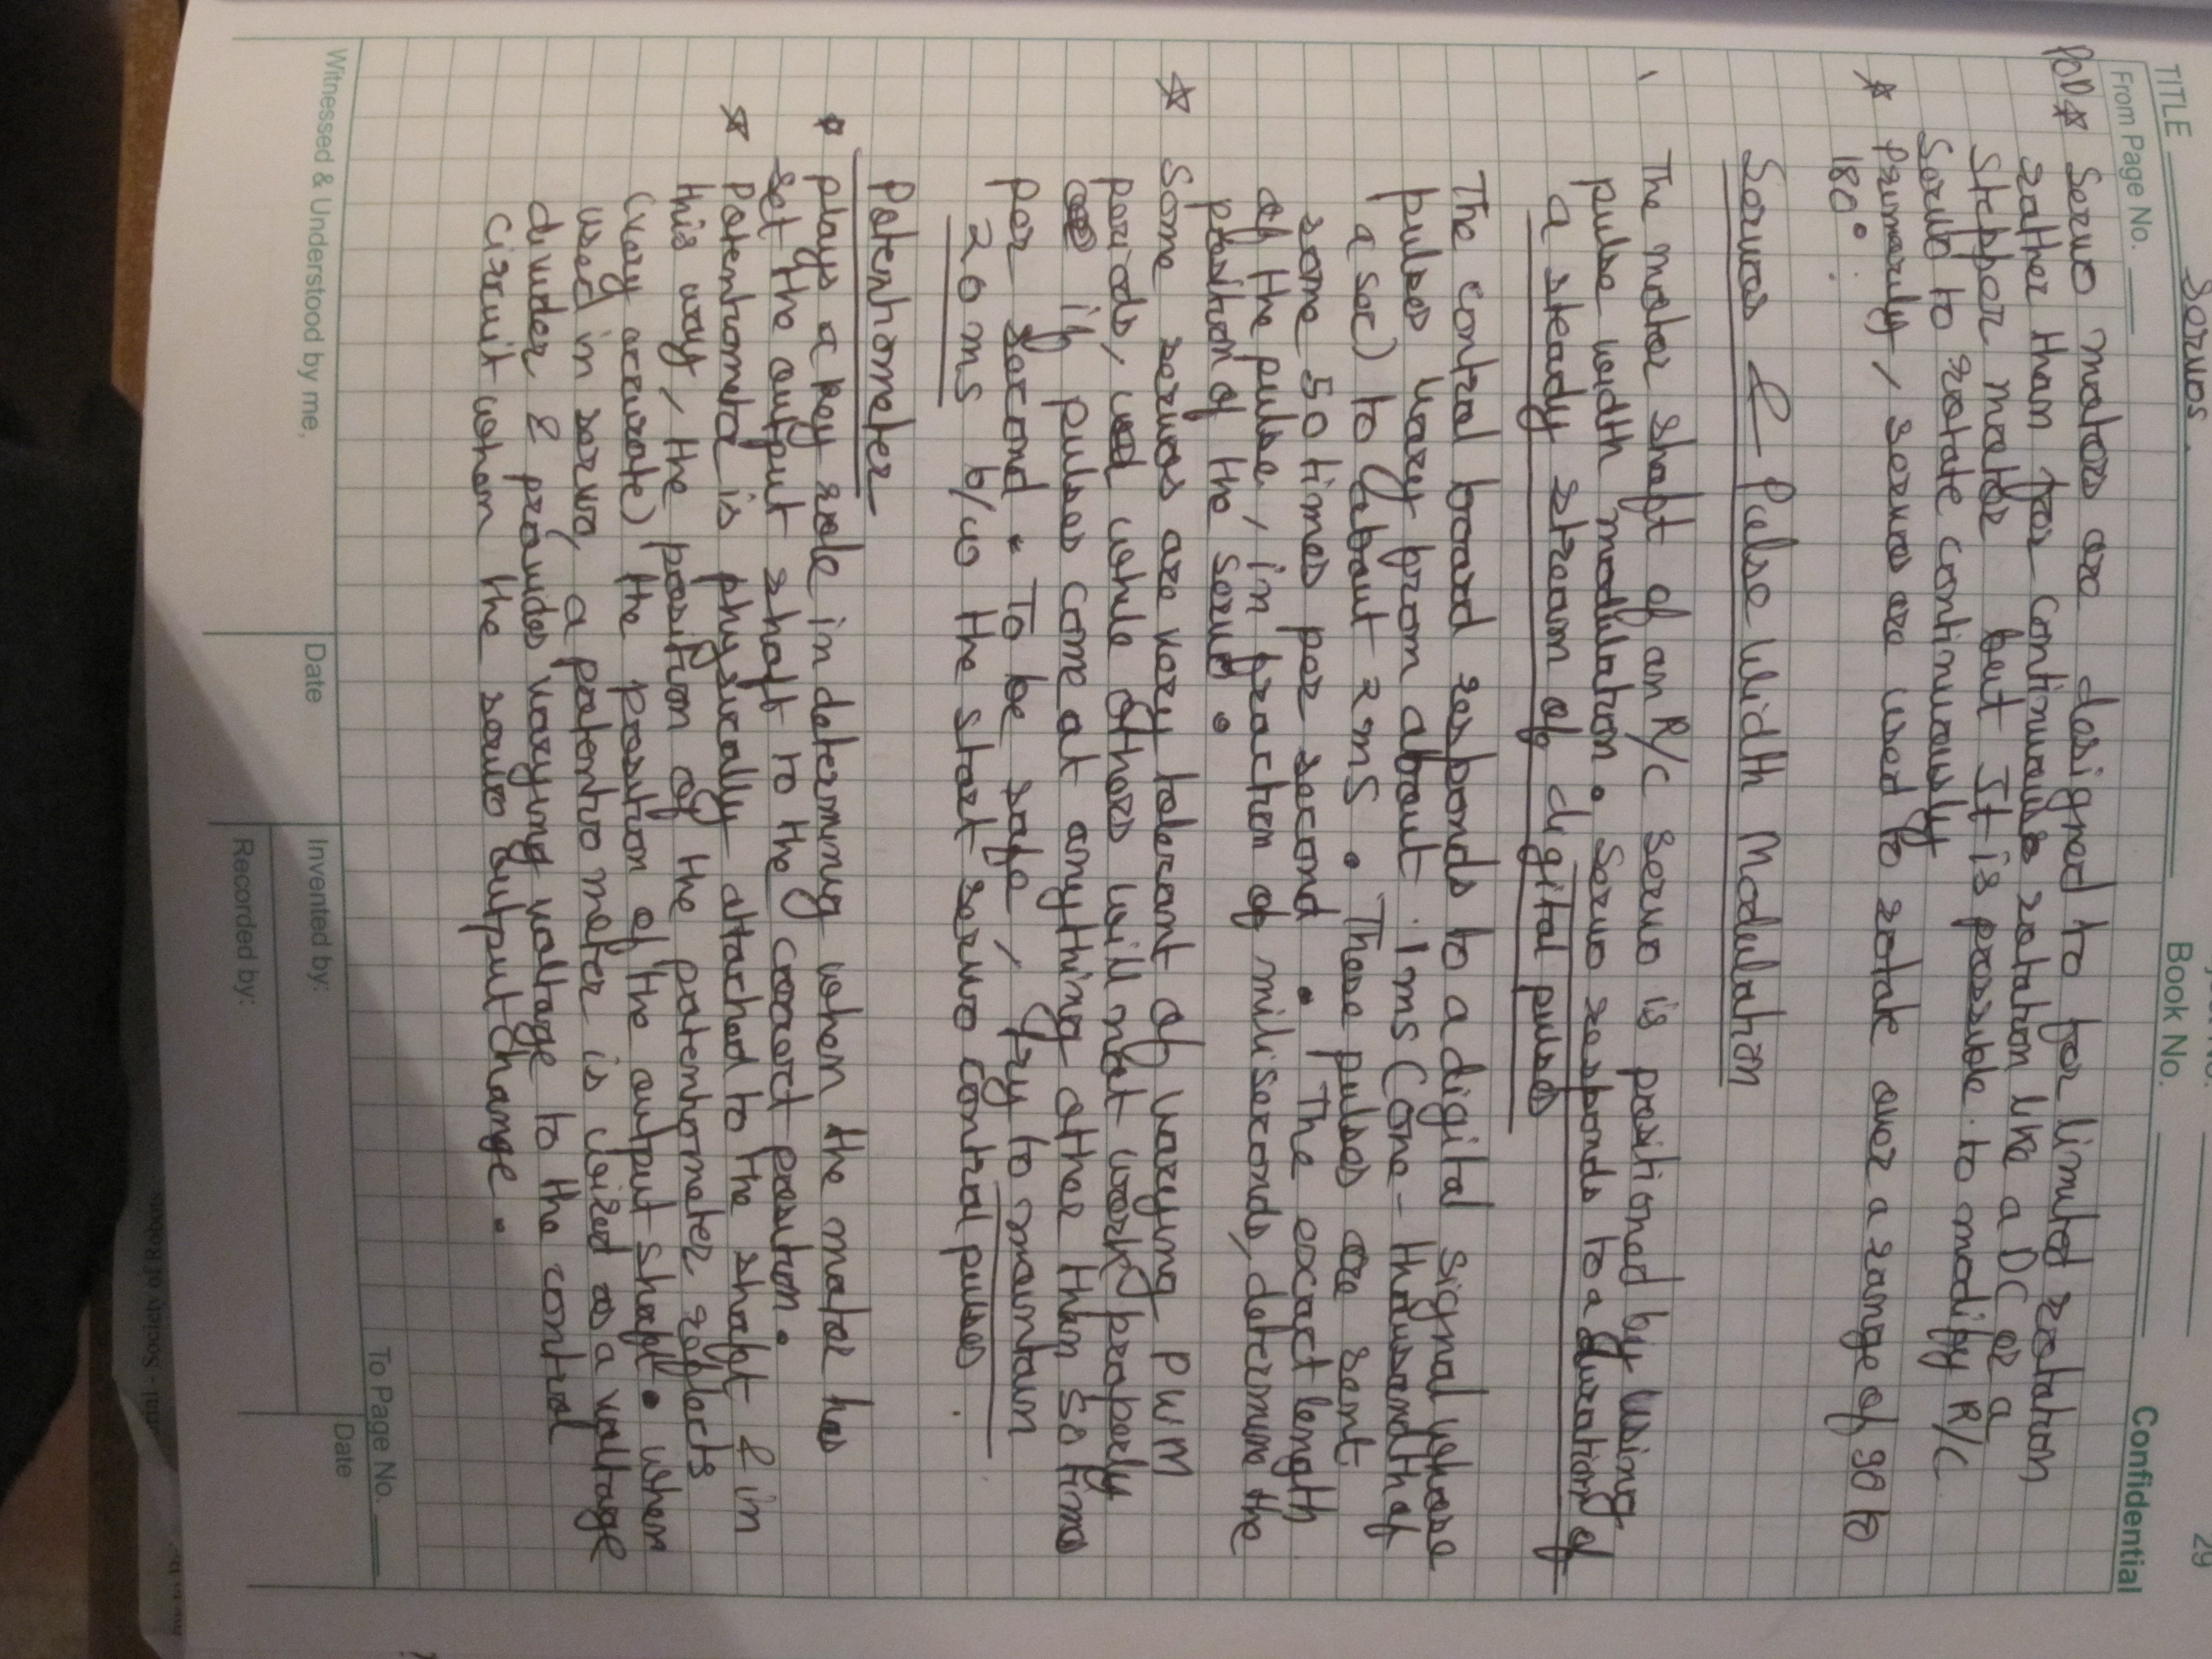 Servos.
29
TITLE
Book No.
Confidential
From Page No.
Servo motors are designed to for limited rotation
rather than for continuous rotation like a DC or a
Stepper motor but It is possible to modify R/C
Servo to rotate continuously
Primarily, servos are used to rotate over a range of 90 to
180°.
Servos & Pulse Width Modulation
The motor shaft of an R/C servo is positioned by using
pulse width modulation. Servo responds to a duration of
a steady stream of digital pulses
The control board responds to a digital signal whose
pulses vary from about 1ms (one-thousandth of
a sec) to about 2ms. These pulses are sent
some 50 times per second. The exact length
of the pulse, in fraction of miliseconds, determine the
position of the servo.
Some servos are very tolerant of varying PWM
periods, while others will not work properly
if pulses come at anything other than 50 times
per second. To be safe, try to maintain
20ms b/w the start servo control pulses.
Potentiometer
plays a key role in determining when the motor has
set the output shaft to the correct position.
Potentiometer is physically attached to the shaft & in
this way, the position of the potentiometer reflects
(very accurate) the position of the output shaft. When
used in servo, a potentiometer is wired as a voltage
divider & provides varying voltage to the control
circuit when the servo output change.
To Page No.
Witnessed & Understood by me,
Date
Invented by:
Date
Recorded by:
Society of Robots